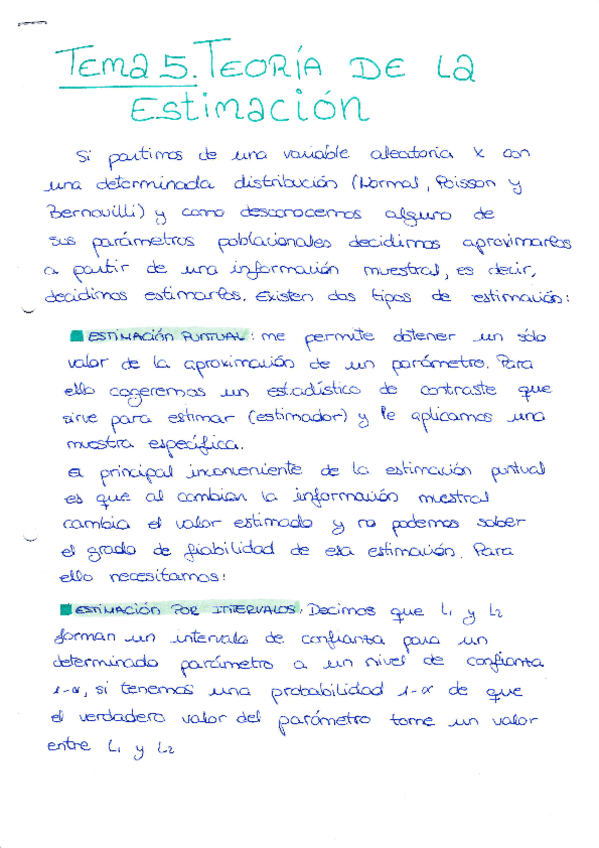 Tema 5. Teoría de la
Estimación
Si partimos de una variable aleatoria x con
una determinada distribución (Normal, Poisson y
Bernouilli) y como desconocemos alguno de
sus parámetros poblacionales decidimos aproximarlos
a partir de una información muestral, es decir,
decidimos estimarlos. Existen dos tipos de estimación:
■ ESTIMACIÓN PUNTUAL: me permite obtener un sólo
valor de la aproximación de un parámetro. Para
ello cogeremos un estadístico de contraste que
sirve para estimar (estimador) y le aplicamos una
muestra específica.
El principal inconveniente de la estimación puntual
es que al cambiar la información muestral
cambia el valor estimado y no podemos saber
el grado de fiabilidad de esa estimación. Para
ello necesitamos:
■ ESTIMACIÓN POR INTERVALOS: Decimos que L₁ y L₂
forman un intervalo de confianza para un
determinado parámetro a un nivel de confianza
1-α, si tenemos una probabilidad 1-α de que
el verdadero valor del parámetro tome un valor
entre L₁ y L₂